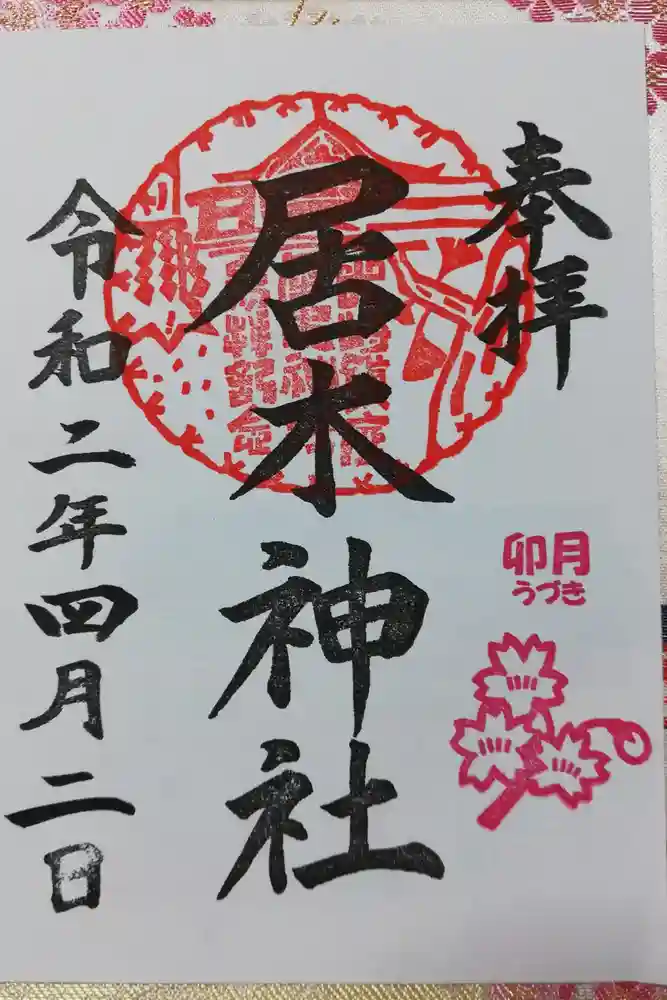 奉拝
卯月
うづき
居木神社
令和二年四月二日